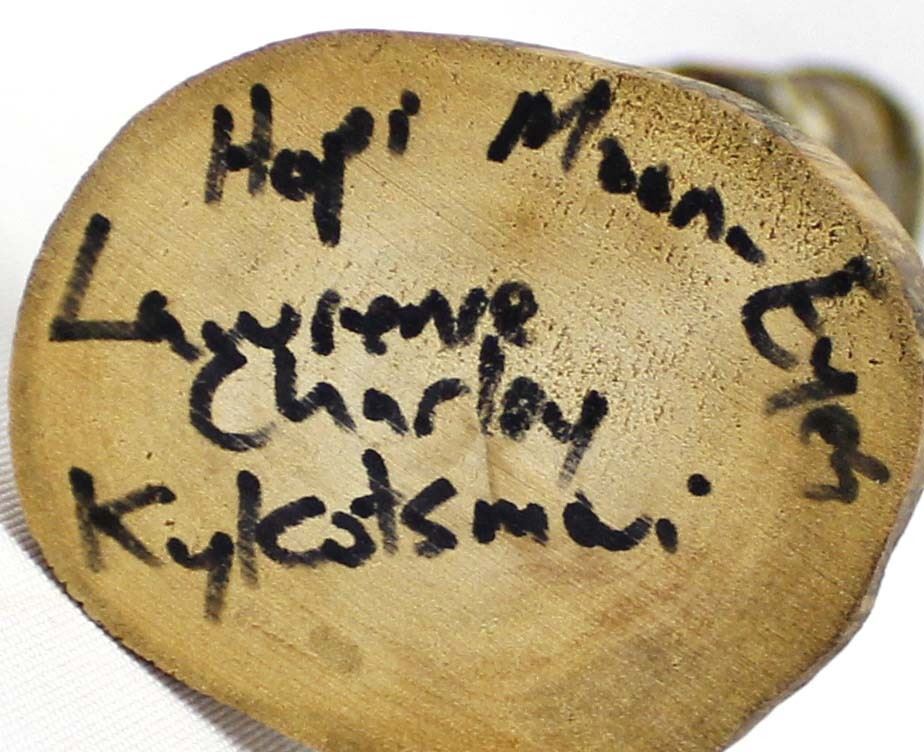 Hopi Moon-
Lawrence
Charley
Kykotsmovi